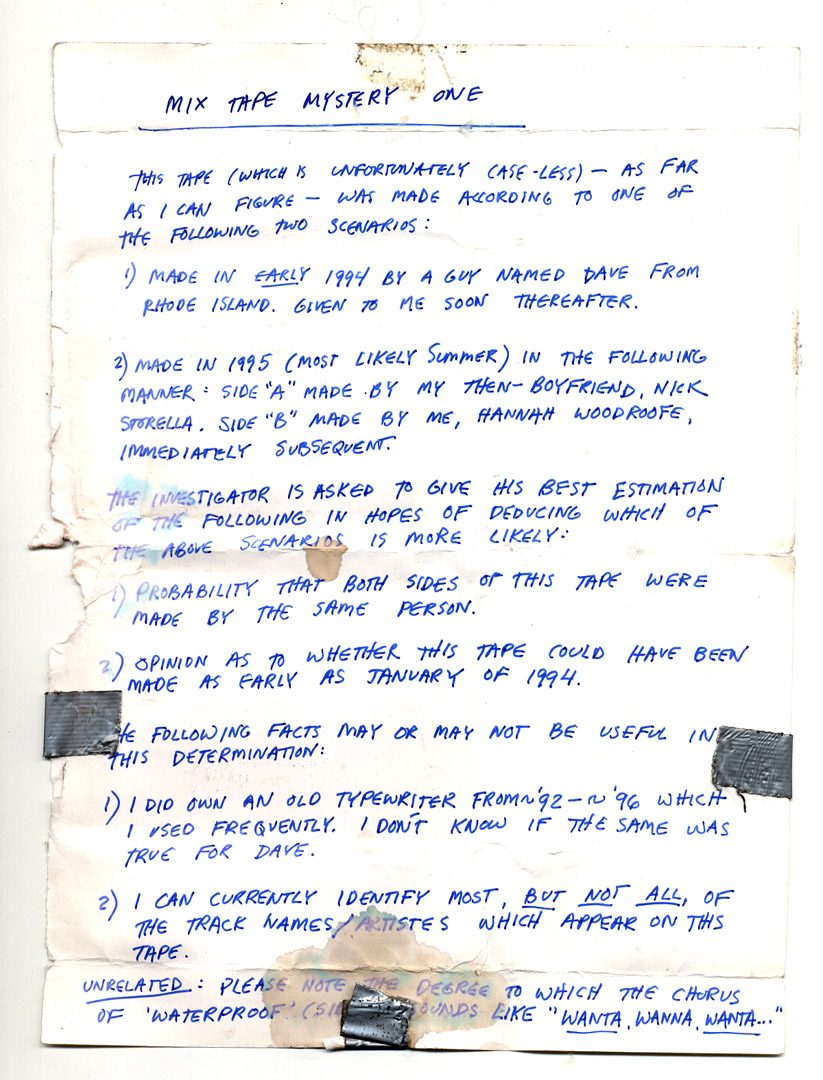 MIX TAPE MYSTERY ONE
THIS TAPE (WHICH IS UNFORTUNATELY CASE-LESS) — AS FAR
AS I CAN FIGURE — WAS MADE ACCORDING TO ONE OF
THE FOLLOWING TWO SCENARIOS:
1) MADE IN EARLY 1994 BY A GUY NAMED DAVE FROM
RHODE ISLAND. GIVEN TO ME SOON THEREAFTER.
2) MADE IN 1995 (MOST LIKELY SUMMER) IN THE FOLLOWING
MANNER: SIDE "A" MADE BY MY THEN-BOYFRIEND, NICK
STORELLA. SIDE "B" MADE BY ME, HANNAH WOODROOFE,
IMMEDIATELY SUBSEQUENT.
THE INVESTIGATOR IS ASKED TO GIVE HIS BEST ESTIMATION
OF THE FOLLOWING IN HOPES OF DEDUCING WHICH OF
THE ABOVE SCENARIOS IS MORE LIKELY:
1) PROBABILITY THAT BOTH SIDES OF THIS TAPE WERE
MADE BY THE SAME PERSON.
2) OPINION AS TO WHETHER THIS TAPE COULD HAVE BEEN
MADE AS EARLY AS JANUARY OF 1994.
HE FOLLOWING FACTS MAY OR MAY NOT BE USEFUL IN
THIS DETERMINATION:
1) I DID OWN AN OLD TYPEWRITER FROM ~'92 — ~'96 WHICH
I USED FREQUENTLY. I DON'T KNOW IF THE SAME WAS
TRUE FOR DAVE.
2) I CAN CURRENTLY IDENTIFY MOST, BUT NOT ALL, OF
THE TRACK NAMES/ARTISTES WHICH APPEAR ON THS
TAPE.
UNRELATED: PLEASE NOTE THE DEGREE TO WHICH THE CHORUS
OF 'WATERPROOF' (SID OUNDS LIKE "WANTA, WANNA, WANTA..."